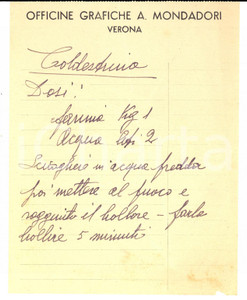 OFFICINE GRAFICHE A. MONDADORI
VERONA
Coldestrina
Dosi!
Farina Kg 1
Acqua 2
Sciogliere in acqua fredda
poi mettere al fuoco e
raggiunto il bollore - farla
bollire 5 minuti